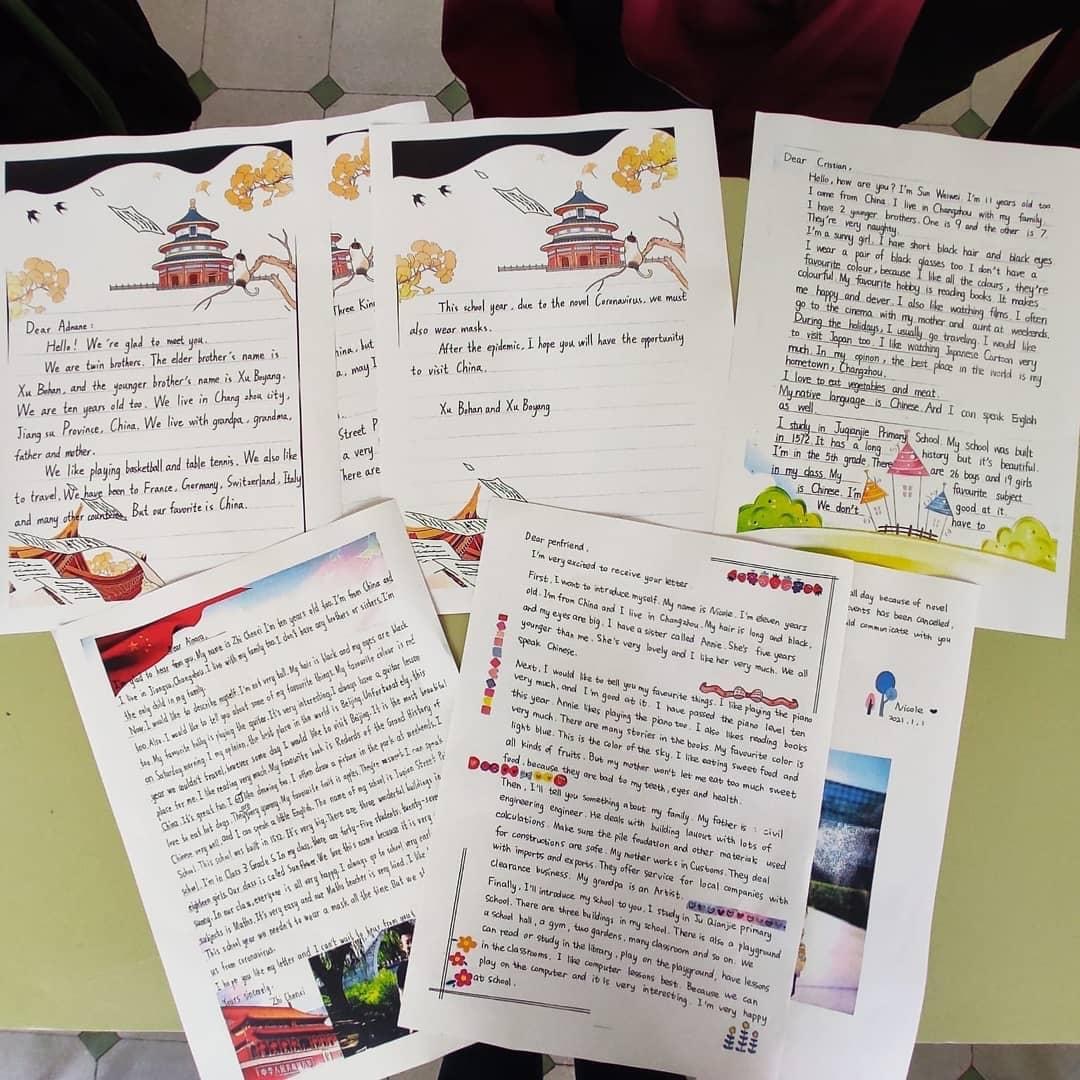 Dear Adnane :
Hello! We're glad to meet you.
We are twin brothers. The elder brother's name is
Xu Bohan, and the younger brother's name is Xu Boyang.
We are ten years old too. We live in Chang zhou city,
Jiang su Province, China. We live with grandpa, grandma,
father and mother.
We like playing basketball and table tennis. We also like
to travel. We have been to France, Germany, Switzerland, Italy
and many other countries. But our favorite is China.
Three Kin
hina, but
a, may I
Street P
a very
here are
This schol year, due to the novel Coronavirus, we must
also wear masks.
After the epidemic, I hope you will have the opportunity
to visit China.
Xu Bohan and Xu Boyang
Dear Cristian,
Hello, how are you? I'm Sun Weiwei I'm 11 years old too.
I come from China. I live in Changzhou with my family.
I have 2 younger brothers. One is 9 and the other is 7.
They're very naughty.
I'm a sunny girl. I have short black hair and black eyes
I wear a pair of black glasses too I don't have a
favourite colour, because I like all the colours, they're
colourful. My favourite hobby is reading books. It makes
me happy and clever. I also like watching films. I often
go to the cinema with my mother and aunt at weekends.
During the holidays, I usually go traveling. I would like
to visit Japan too. I like watching Japanese Cartoon very
much. In my opinon, the best place in the world is my
hometown, Changzhou.
I love to eat vegetables and meat.
My native language is Chinese. And I can speak English
as well.
I study in Juqianjie Primary School. My school was built
in 1572. It has a long history but it's beautiful.
I'm in the 5th grade. There are 26 boys and 19 girls
in my class. My favourite subject
is Chinese. I'm good at it.
We don't have to
Dear Aimara,
I'm glad to hear from you. My name is Zhi Chenxi I'm ten years old too. I'm from China and
I live in Jiangsu, Changzhou. I live with my family too. I don't have any brothers or sisters. I'm
the only child in my family.
Now, I would like to describe myself. I'm not very tall. My hair is black and my eyes are black
too. Also, I would like to tell you about some of my favourite things. My favourite colour is red
too. My favourite hobby is playing the guitar. It's very interesting. I always have a guitar lesson
on Saturday morning. In my opinion, the best place in the world is Beijing. Unfortunately, this
year we couldn't travel, however some day I would like to visit Beijing. It is the most beautiful
place for me. I like reading very much. My favourite book is Redards of the Grand History of
China. It's great fun. I like drawing too. I often draw a picture in the park at weekends. I
love to eat hot dogs. They're very yummy. My favourite fruit is apples. They're sweet. I can speak
Chinese very well and I can speak a little English. The name of my school is Juqian Street P
School. This school was built in 1572. It's very big. There are three wonderful buildings in
school. I'm in Class 3 Grade 5. In my class, there are forty-five students: twenty-seven
eighteen girls. Our class is called Sunflower. We love this name because it is very
sunny. In our class, everyone is all very happy. I always go to school very earl
subjects is Maths. It's very easy and our Maths teacher is very kind. I like
This school year we needn't to wear a mask all the time. But we s
us from coronavirus.
I hope you like my letter and I can't wait to hear from you
Yours sincerely.
Zhi Chenxi
Dear penfriend,
I'm very excited to receive your letter.
First, I want to introduce myself. My name is Nicole. I'm eleven years
old. I'm from China and I live in Changzhou. My hair is long and black,
and my eyes are big. I have a sister called Annie. She's five years
younger than me. She's very lovely and I like her very much. We all
speak Chinese.
Next, I would like to tell you my favourite things. I like playing the piano
very much, and I'm good at it. I have passed the piano level ten
this year. Annie likes playing the piano too. I also likes reading books
very much. There are many stories in the books. My favourite color is
light blue. This is the color of the sky. I like eating sweet food and
all kinds of fruits. But my mother won't let me eat too much sweet
food, because they are bad to my teeth, eyes and health.
Then, I'll tell you something about my family. My father is : civil
engineering engineer. He deals with building layout with lots of
calculations. Make sure the pile foundation and other materials used
for constructions are safe. My mother works in Customs. They deal
with imports and exports. They offer service for local companies with
clearance business. My grandpa is an Artist.
Finally, I'll introduce my school to you. I study in Ju Qianjie primary
School. There are three buildings in my school. There is also a playground
a school hall, a gym, two gardens, many classroom and so on. We
can read or study in the library, play on the playground, have lessons
in the classrooms. I like computer lessons best. Because we can
play on the computer and it is very interesting. I'm very happy
at school.
all day because of novel
vents has been cancelled,
ld communicate with you
Nicole
2021.1.1